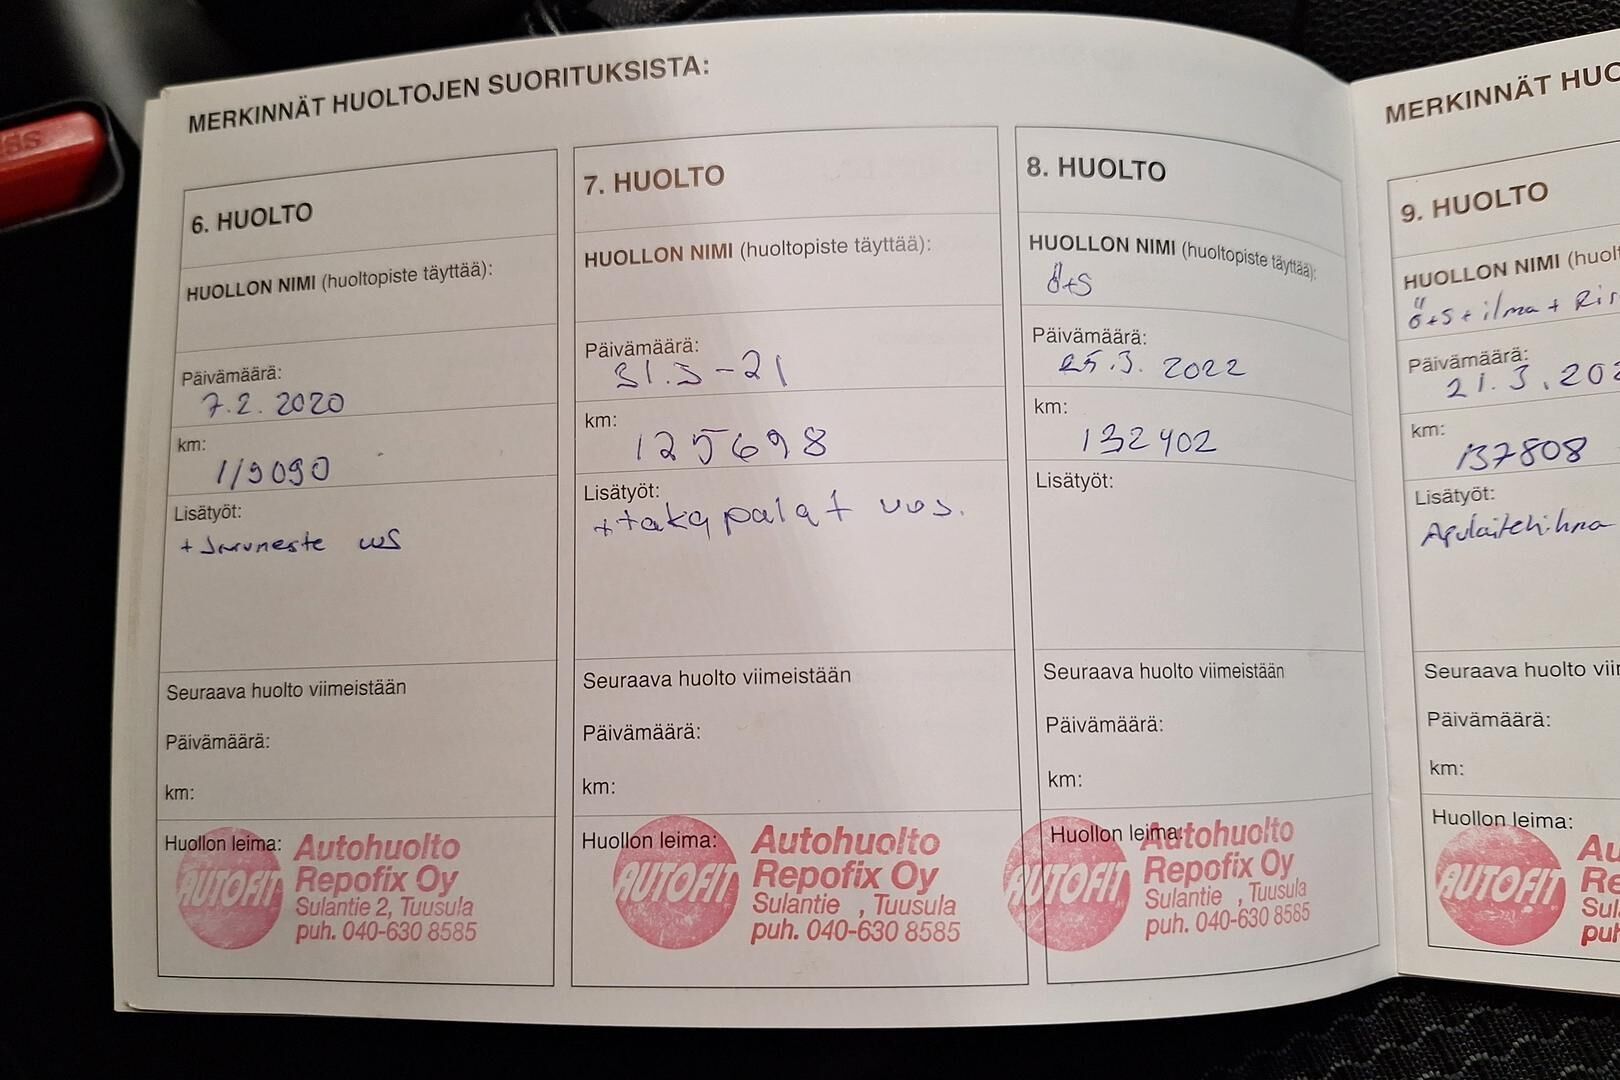 MERKINNÄT HUOLTOJEN SUORITUKSISTA:
6. HUOLTO
HUOLLON NIMI (huoltopiste täyttää):
Päivämäärä:
7.2. 2020
km:
119090
Lisätyöt:
+ Jarruneste
Seuraava huolto viimeistään
Päivämäärä:
km:
Huollon leima:
AUTOFIT
Autohuolto
Repofix Oy
Sulantie 2, Tuusula
puh. 040-630 8585
7. HUOLTO
HUOLLON NIMI (huoltopiste täyttää):
Päivämäärä:
31.3-21
km:
125698
Lisätyöt:
+ taka palat vos.
Seuraava huolto viimeistään
Päivämäärä:
km:
Huollon leima:
AUTOFIT
Autohuolto
Repofix Oy
Sulantie , Tuusula
puh. 040-630 8585
8. HUOLTO
HUOLLON NIMI (huoltopiste täyttää):
Ö+S
Päivämäärä:
25.3. 2022
km:
132402
Lisätyöt:
Seuraava huolto viimeistään
Päivämäärä:
km:
Huollon leima:
AUTOFIT
Autohuolto
Repofix Oy
Sulantie , Tuusula
puh. 040-630 8585
MERKINNÄT HUO
9. HUOLTO
HUOLLON NIMI (huolt
Ö+S+ilma+
Päivämäärä:
21.3.202
km:
137808
Lisätyöt:
Seuraava huolto viim
Päivämäärä:
km:
Huollon leima:
AUTOFIT
Au
Re
Sul
puh